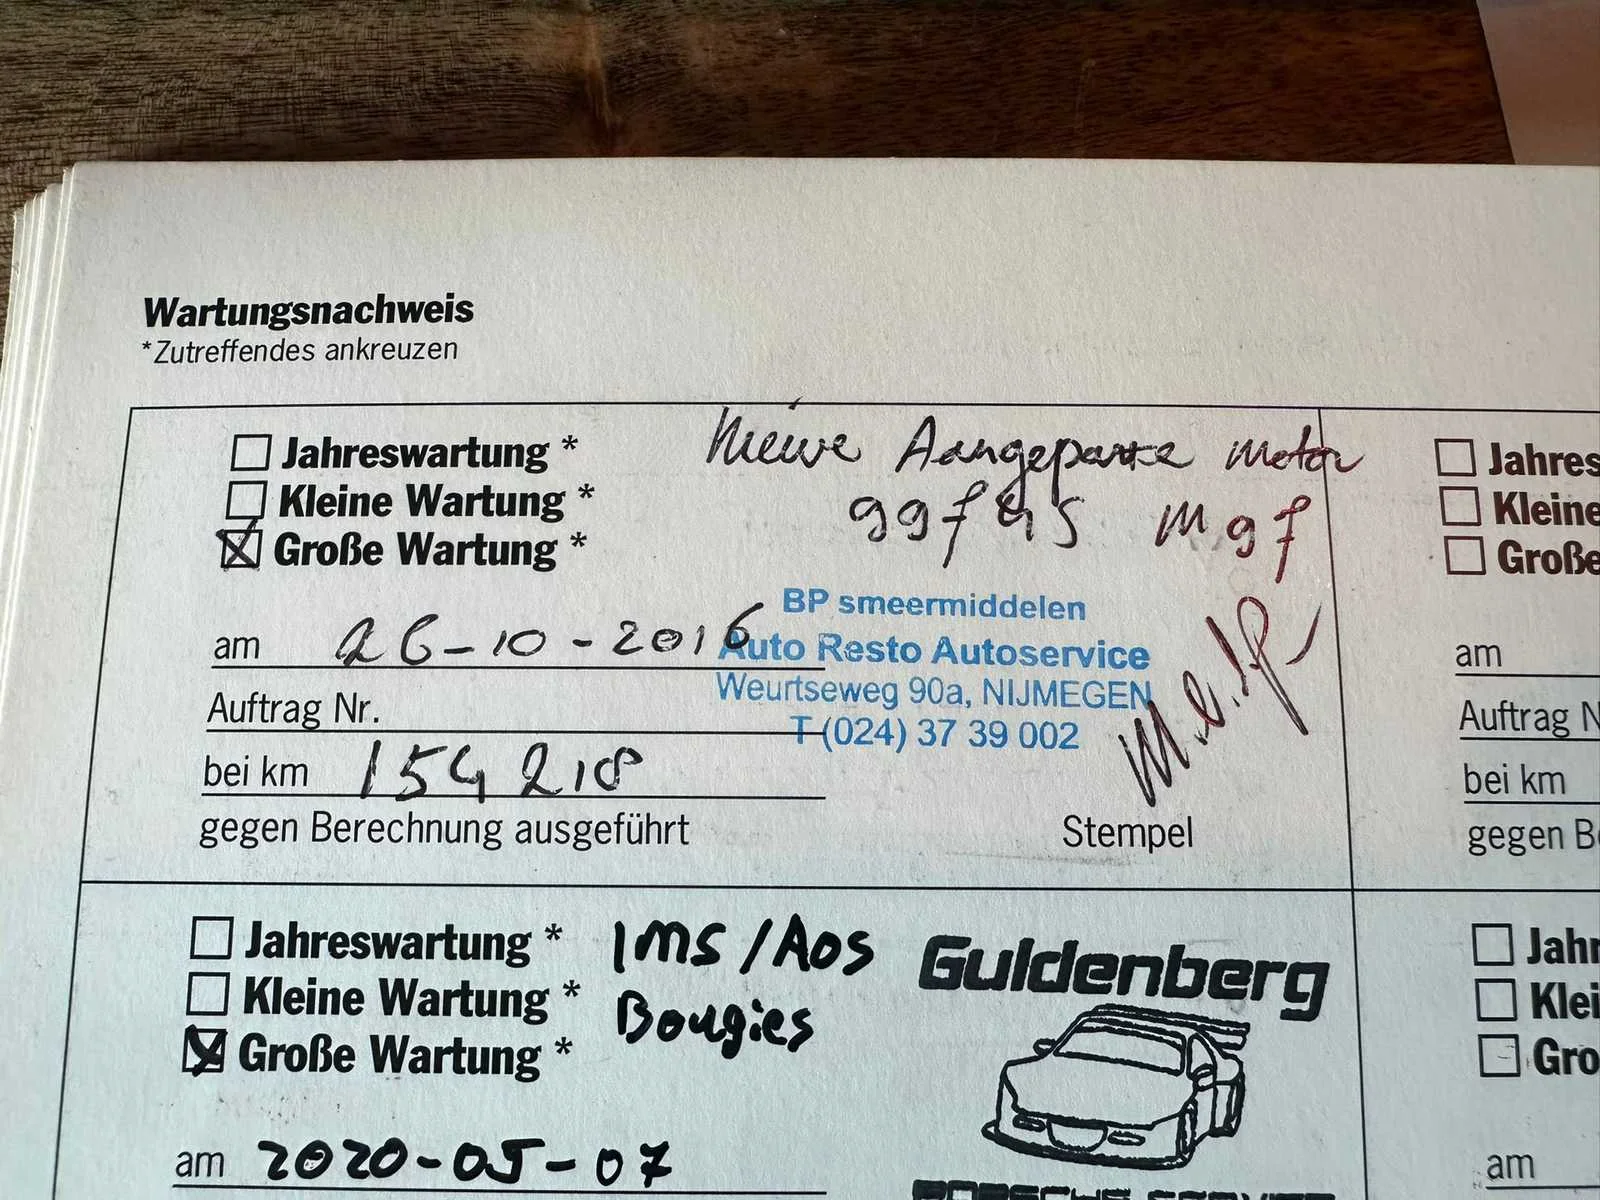 Wartungsnachweis
*Zutreffendes ankreuzen
Jahreswartung *
Kleine Wartung *
Große Wartung *
Nieuwe Aangepaste Motor
BP smeermiddelen
Auto Resto Autoservice
Weurtseweg 90a, NIJMEGEN
T (024) 37 39 002
am 26-10-2016
Auftrag Nr.
bei km 154218
gegen Berechnung ausgeführt
Stempel
Jahreswartung *
Kleine Wartung *
Große Wartung *
IMS/AOS
Bougies
Guldenberg
PORSCHE SERVICE
am 2020-05-07
Jahres
Kleine
Große
am
Auftrag N
bei km
gegen Be
Jahr
Klei
Gro
am